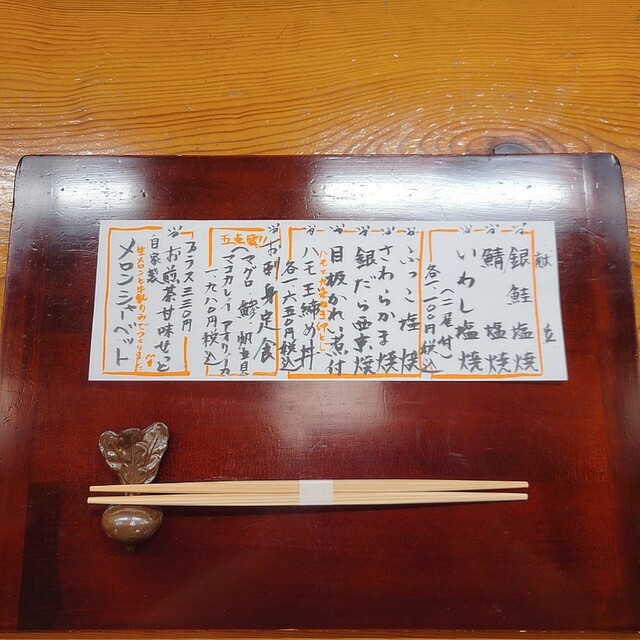 献立
銀鮭塩焼
鯖塩焼
いわし塩焼
(二尾付)
各一一〇〇円(税込)
ぶっこ塩焼
さわらかま焼
銀だら西京焼
目抜かれい煮付
ハモ玉締め丼
各一六五〇円(税込)
お刺身定食
五点盛り!
(マグロ 鯵 帆立貝
マコカレイ アオリイカ)
一、九八〇円(税込)
プラス三三〇円
お煎茶甘味せっと
自家製
メロンシャーベット